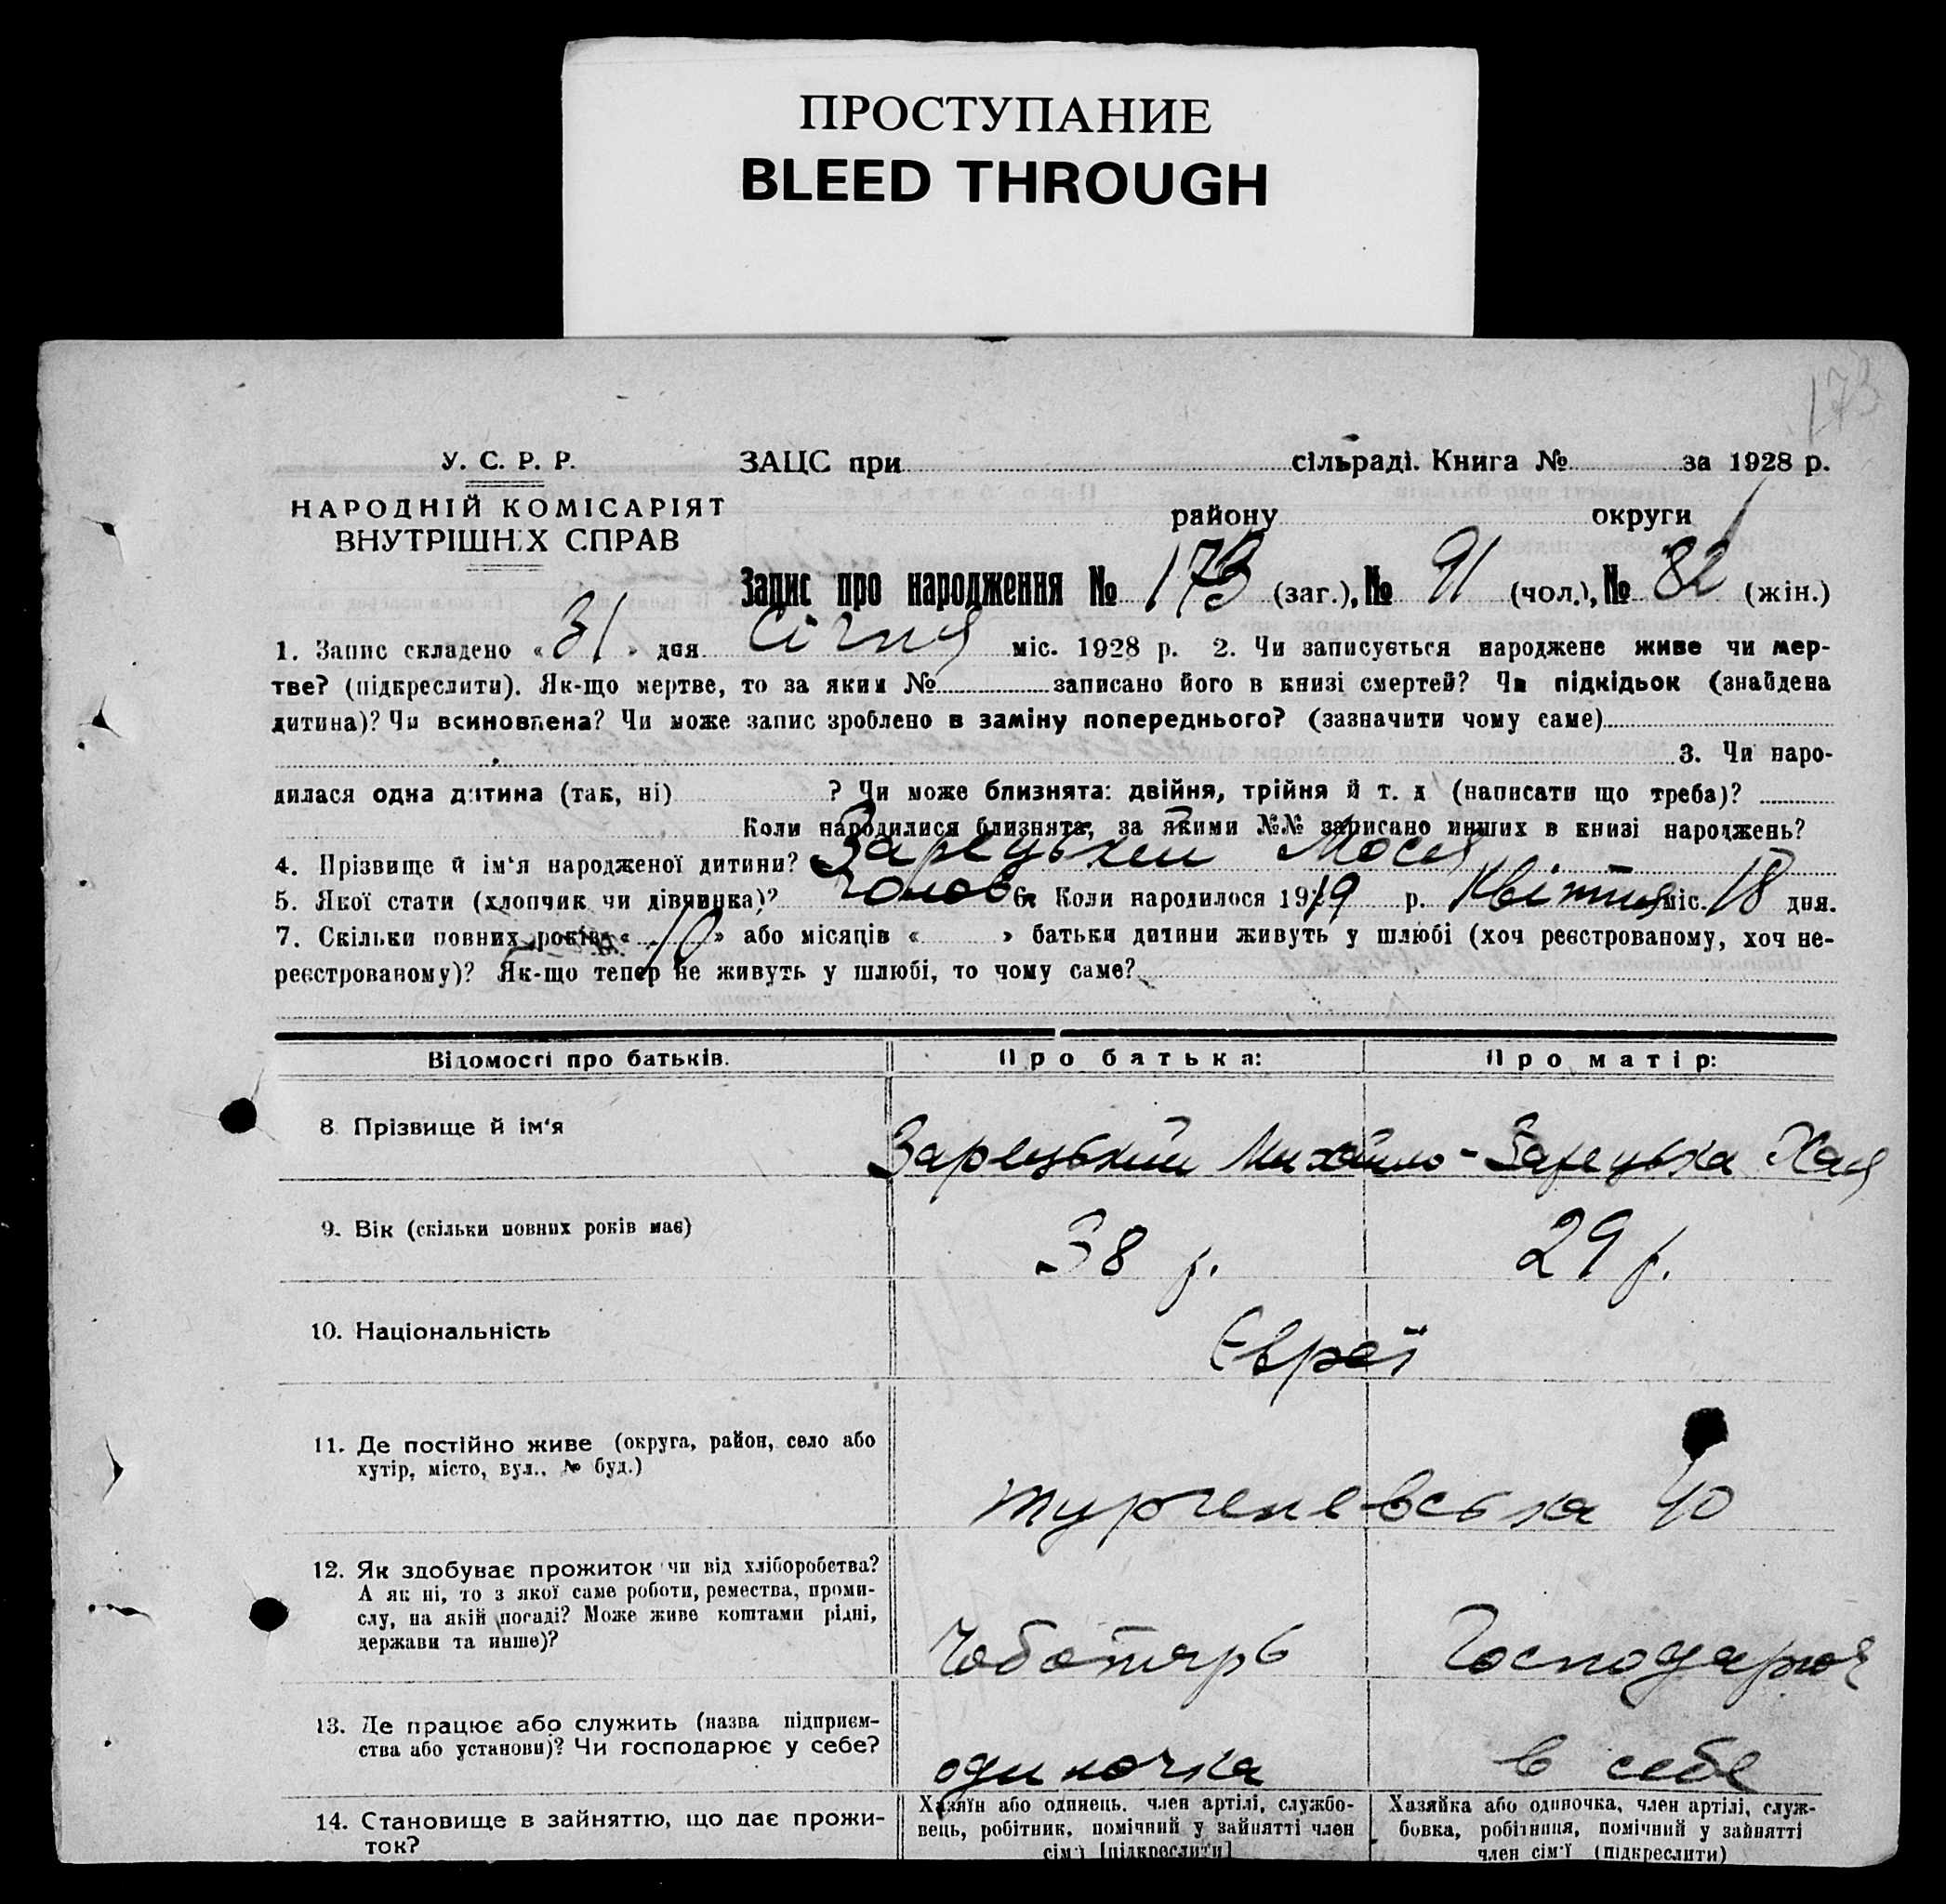 ПРОСТУПАНИЕ
BLEED THROUGH
173
У. С. Р. Р.
ЗАЦС при сільраді. Книга № за 1928 р.
НАРОДНІЙ КОМІСАРІЯТ
ВНУТРІШНІХ СПРАВ
району округи
Запис про народження № 173 (заг.), № 91 (чол.), № 82 (жін.)
1. Запис складено « 31 » дня Січня міс. 1928 р. 2. Чи записується народжене живе чи мер-
тве? (підкреслити). Як-що мертве, то за яким № записано його в книзі смертей? Чи підкідьок (знайдена
дитина)? Чи всиновлена? Чи може запис зроблено в заміну попереднього? (зазначити чому саме)
3. Чи наро-
дилася одна дитина (так, ні) ? Чи може близнята: двійня, трійня й т. д (написати що треба)?
Коли народилися близнята, за якими №№ записано инших в книзі народжень?
4. Прізвище й ім'я народженої дитини? Зарецький Мосей
5. Якої стати (хлопчик чи дівчинка)? Чолов 6. Коли народилося 1919 р. Квітня міс. 18 дня.
7. Скільки повних років « 10 » або місяців « » батьки дитини живуть у шлюбі (хоч реєстрованому, хоч не-
реєстрованому)? Як-що тепер не живуть у шлюбі, то чому саме?
Відомості про батьків. Про батька: Про матір:
8. Прізвище й ім'я Зарецький Михайло - Зарецька Хая
9. Вік (скільки повних років має) 38 р. 29 р.
10. Національність Євреї
11. Де постійно живе (округа, район, село або
хутір, місто, вул., № буд.)
тургеневська 40
12. Як здобуває прожиток чи від хліборобства?
А як ні, то з якої саме роботи, ремества, проми-
слу, на якій посаді? Може живе коштами рідні,
держави та инше)?
Чоботарь Господарює
13. Де працює або служить (назва підприєм-
ства або установи)? Чи господарює у себе?
одиночка в себе
14. Становище в зайняттю, що дає прожи-
ток?
Хазяїн або одинець, член артілі, службо-
вець, робітник, помічний у зайнятті член
сім'ї [підкреслити]
Хазяйка або одиночка, член артілі, служ-
бовка, робітниця, помічний у зайнятті
член сім'ї (підкреслити)